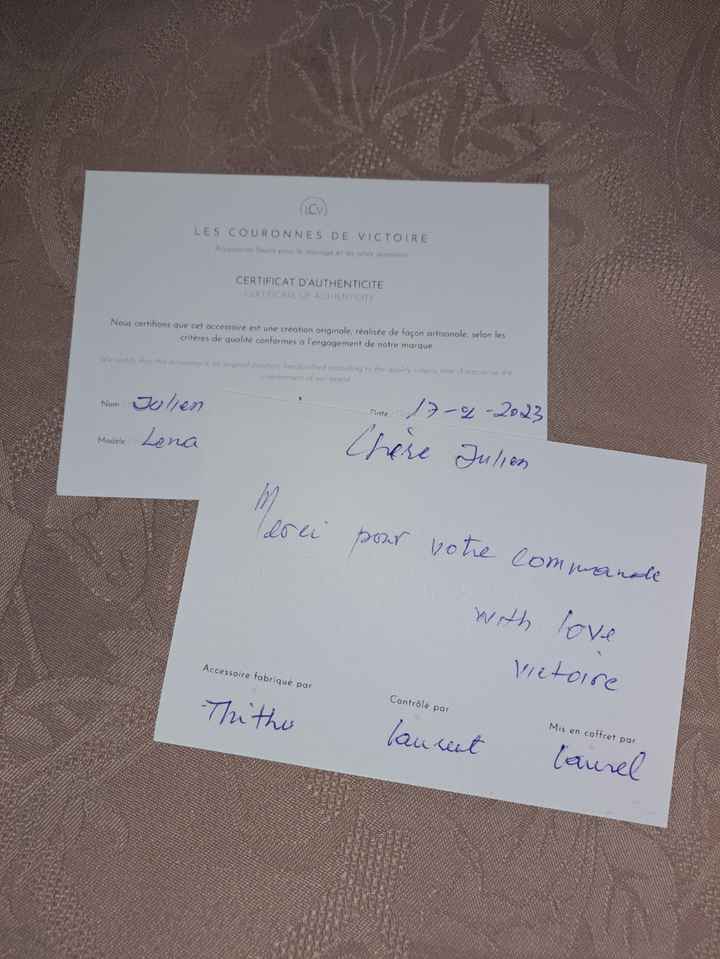 LCV
LES COURONNES DE VICTOIRE
Accessoires fleuris pour le mariage et les jolies occasions
CERTIFICAT D'AUTHENTICITE
CERTIFICATE OF AUTHENTICITY
Nous certifions que cet accessoire est une création originale, réalisée de façon artisanale, selon les
critères de qualité conformes a l'engagement de notre marque
We certify that this accessory is an original creation, handcrafted according to the quality criteria
commitment of our brand
Nom Julien
Date 17-2-2023
Modèle Lena
Chère Julien
Merci pour votre commande
with love
Victoire
Accessoire fabriqué par
Contrôlé par
Mis en coffret par
Thithu
Laurent
Laurel